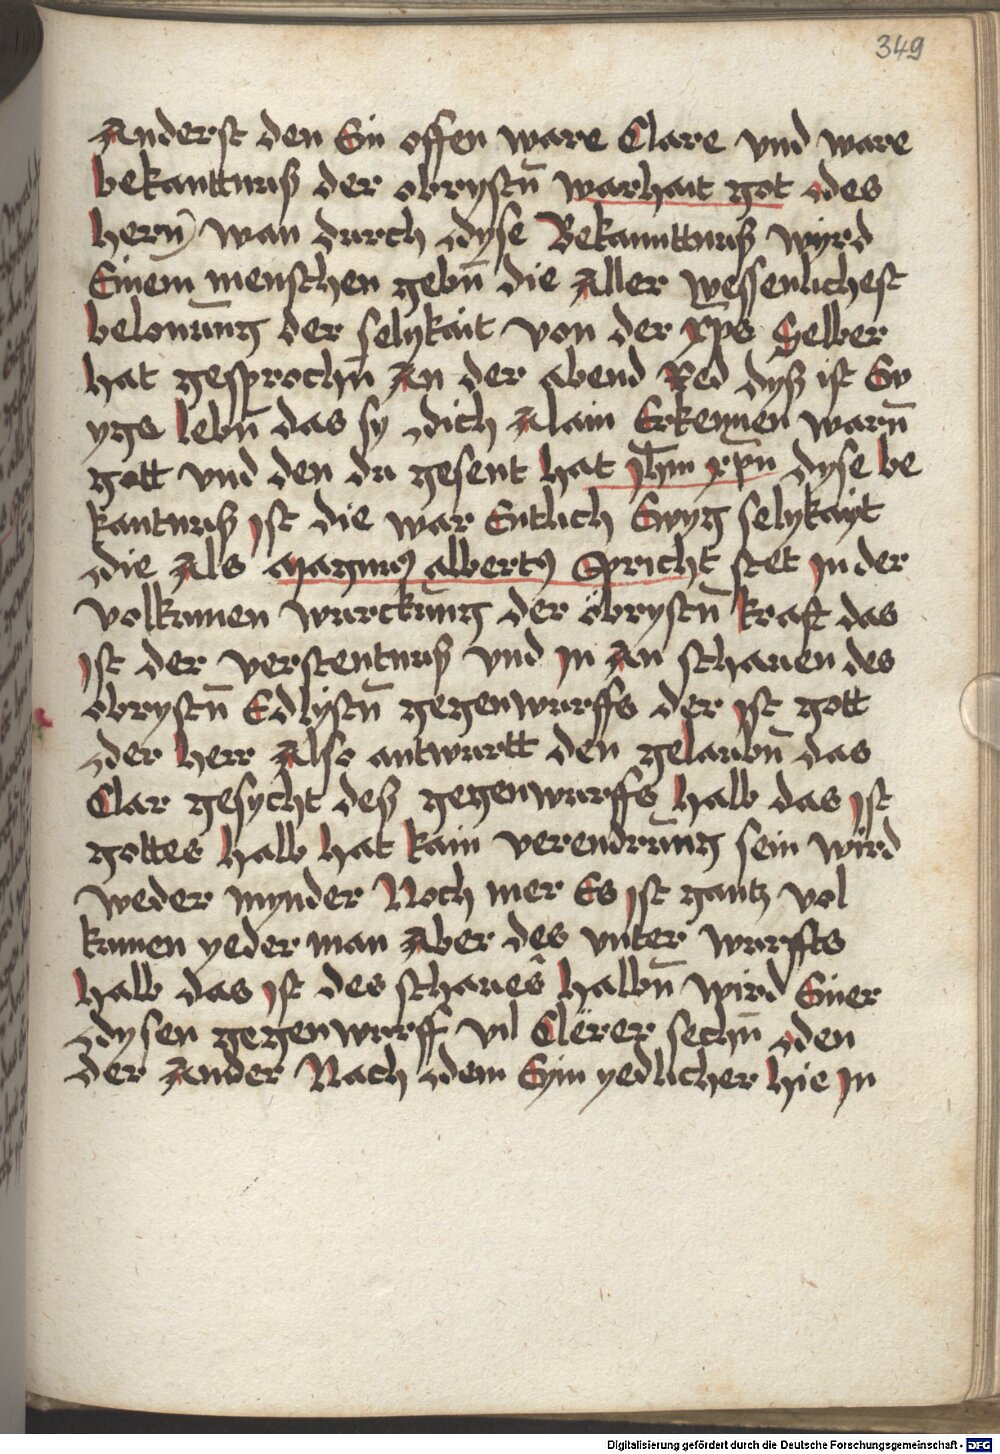 349
Anderst den Ein offen ware Clare vnd ware
bekanttnuß der obrystn̄ warhait got des
hern̄ wan durch dyse Bekanntnuß wyrd
Einem menschen gebn̄ die aller wessenlichest
belonūng der selykait von der xp̄s Selber
hat gesprochn̄ An der abend Red dyß ist Ew
ygs lebn̄ das sy dich Alain Erkennen warn̄
gott vnd den du gesent hat Jhm̄ xpn̄ dyse be
kantnuß ist die war Entlich Ewyg selykayt
die Als Magnus albertus Spricht stet Jn der
volkumen wurckūng der öbrystn̄ kraft das
ist der verstentnuß vnd Jn An schauen des
obrystn̄ Edlystn̄ gegenwurffs der ist gott
der herr Also antwurtt den gelaubn̄ das
Clar gesycht deß gegenwurffs halb das ist
gottes halb hat kain verendrūng sein wird
weder mynder Noch mer Es ist gantz vol
kumen yederman Aber des vnter wurffts
halb das ist des schaues halbn̄ wird Einer
dysen gegenwurff vil Clerer sechn̄ den
der Ander Nach dem Eyin yedlicher hie Jn
Digitalisierung gefördert durch die Deutsche Forschungsgemeinschaft - DFG